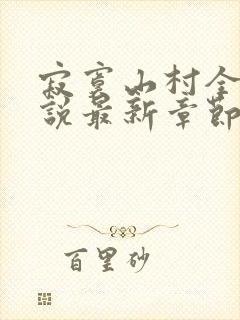 寂寞山村全
說最新章節
百里砂